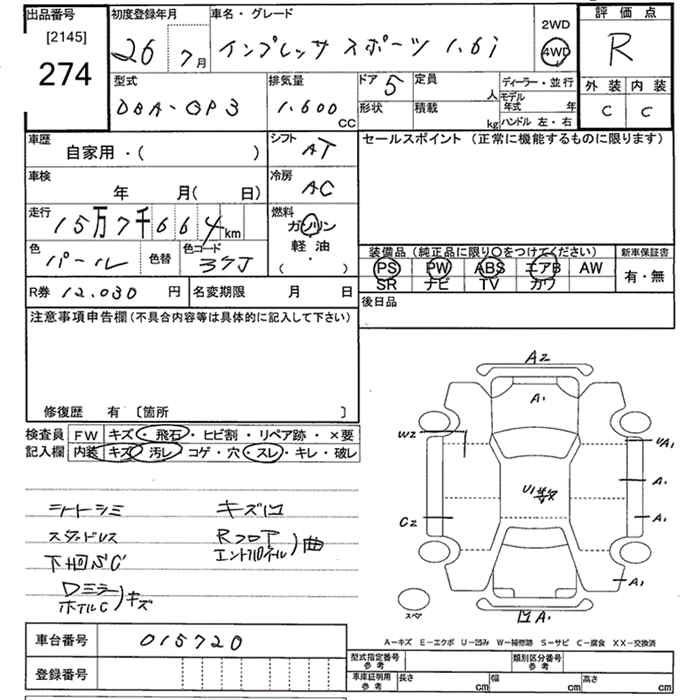 出品番号
[2145]
274
初度登録年月
26 7月
車名・グレード
インプレッサ スポーツ 1.6i
2WD
4WD
評価点
R
外装 内装
C C
型式
DBA-GP3
排気量
1.600
CC
ドア
5
形状
定員
人
積載
kg
ディーラー・並行
モデル
年式 年
ハンドル 左・右
車歴
自家用・( )
シフト
AT
車検
年 月( 日)
冷房
AC
走行
15万7千664km
燃料
ガソリン
軽油
・
( )
色
パール
色替
色コード
37J
セールスポイント (正常に機能するものに限ります)
装備品(純正品に限り〇をつけてください)
PS PW ABS エアB AW
SR ナビ TV カワ
新車保証書
有・無
R券 12.030 円
名変期限 月 日
後日品
注意事項申告欄(不具合内容等は具体的に記入して下さい)
修復歴 有 〔箇所 〕
検査員
記入欄
FW キズ・飛石・ヒビ割・リペア跡・×要
内装 キズ・汚レ・コゲ・穴・スレ・キレ・破レ
シートシミ
スタッドレス
下回S C
Dミラー
ホイルC
キズ
キズ凹
Rフロア
エンドパネル
曲
A2
A1
W2
UA1
U1
A1
C2
A1
A1
スペア
凹 A1
A-キズ E-エクボ U-凹み W-補修跡 S-サビ C-腐食 XX-交換済
車台番号
015720
登録番号
型式指定番号
参考
類別区分番号
参考
車庫証明用
参考
長さ cm
幅 cm
高さ cm